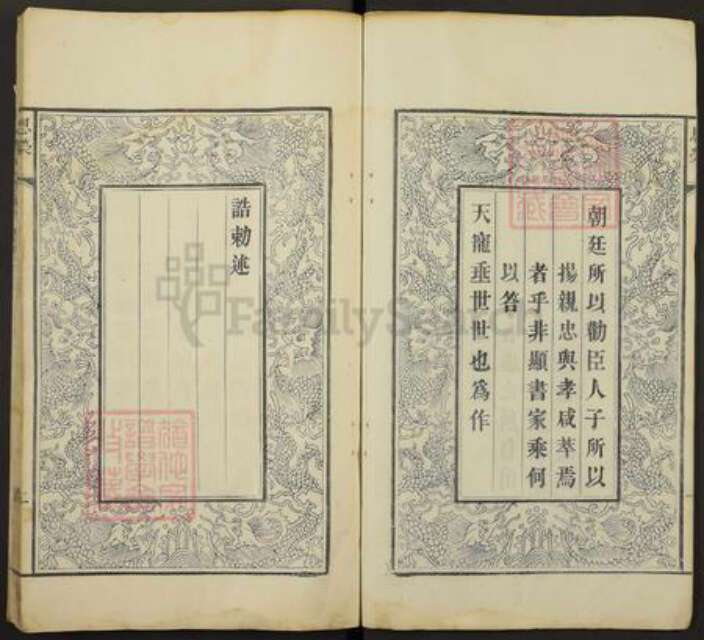 朝廷所以勸臣人子所以
揚親忠與孝咸萃焉
者乎非顯書家乘何
以答
天寵垂世世也爲作
誥勅述
FamilySearch
恩榮